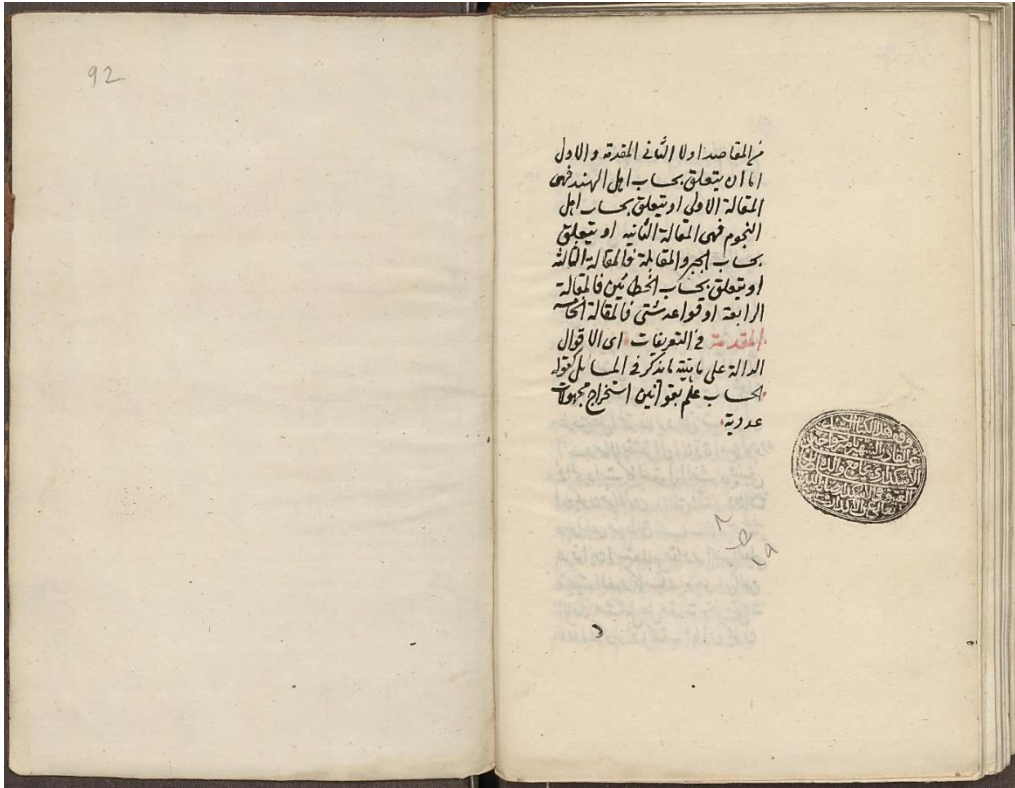 92
من المقاصد اولا الثانى المقدمة والاول
اما ان يتعلق بحساب اهل الهند فهى
المقالة الاولى او يتعلق بحساب اهل
النجوم فهى المقالة الثانيه او يتعلق
بحساب الجبر والمقابلة فالمقالة الثالثة
او يتعلق بحساب الخطائين فالمقالة
الرابعة او قواعد شتى فالمقالة الخامسه
المقدمة فى التعريفات اى الاقوال
الدالة على ماهية ما يذكر فى المسايل كقوله
الحساب علم بقوانين استخراج مجهولات
عددية